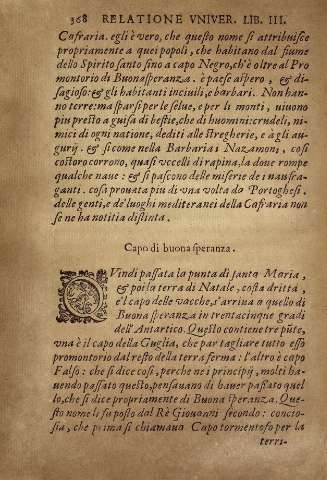 368 RELATIONE VNIVER. LIB. III.
Cafraria. egli è vero, che questo nome si attribuisce
propriamente a quei popoli, che habitano dal fiume
dello Spirito santo sino a capo Negro, ch'è oltre al Pro
montorio di Buonasperanza. è paese aspero, & di-
sagioso: & gli habitanti inciuili, e barbari. Non han-
no terre: ma sparsi per le selue, e per li monti, uiuono
piu presto a guisa di bestie, che di huomini: crudeli, ni-
mici di ogni natione, dediti alle stregherie, e a gli au-
gurij. & si come nella Barbaria i Nazamoni, cosi
costoro corrono, quasi vccelli di rapina, la doue rompe
qualche naue: & si pascono delle miserie de i naufra-
ganti. cosi prouata piu di una volta da Portoghesi.
delle genti, e de' luoghi mediteranei della Cafraria non
se ne ha notitia distinta.
Capo di buona speranza.
QVindi passata la punta di santa Maria,
& poi la terra di Natale, costa dritta,
e'l capo delle vacche, s'arriua a quello di
Buona speranza in trentacinque gradi
dell'Antartico. Questo contiene tre pũte,
vna è il capo della Guglia, che par tagliare tutto esso
promontorio dal resto della terra ferma: l'altro è capo
Falso: che si dice cosi, perche ne i principij, molti ha-
uendo passato questo, pensauano di hauer passato quel
lo, che si dice propriamente di Buona speranza. Que-
sto nome li fu posto dal Rè Giouanni secondo: concio-
sia, che prima si chiamaua Capo tormentoso per la
terri-